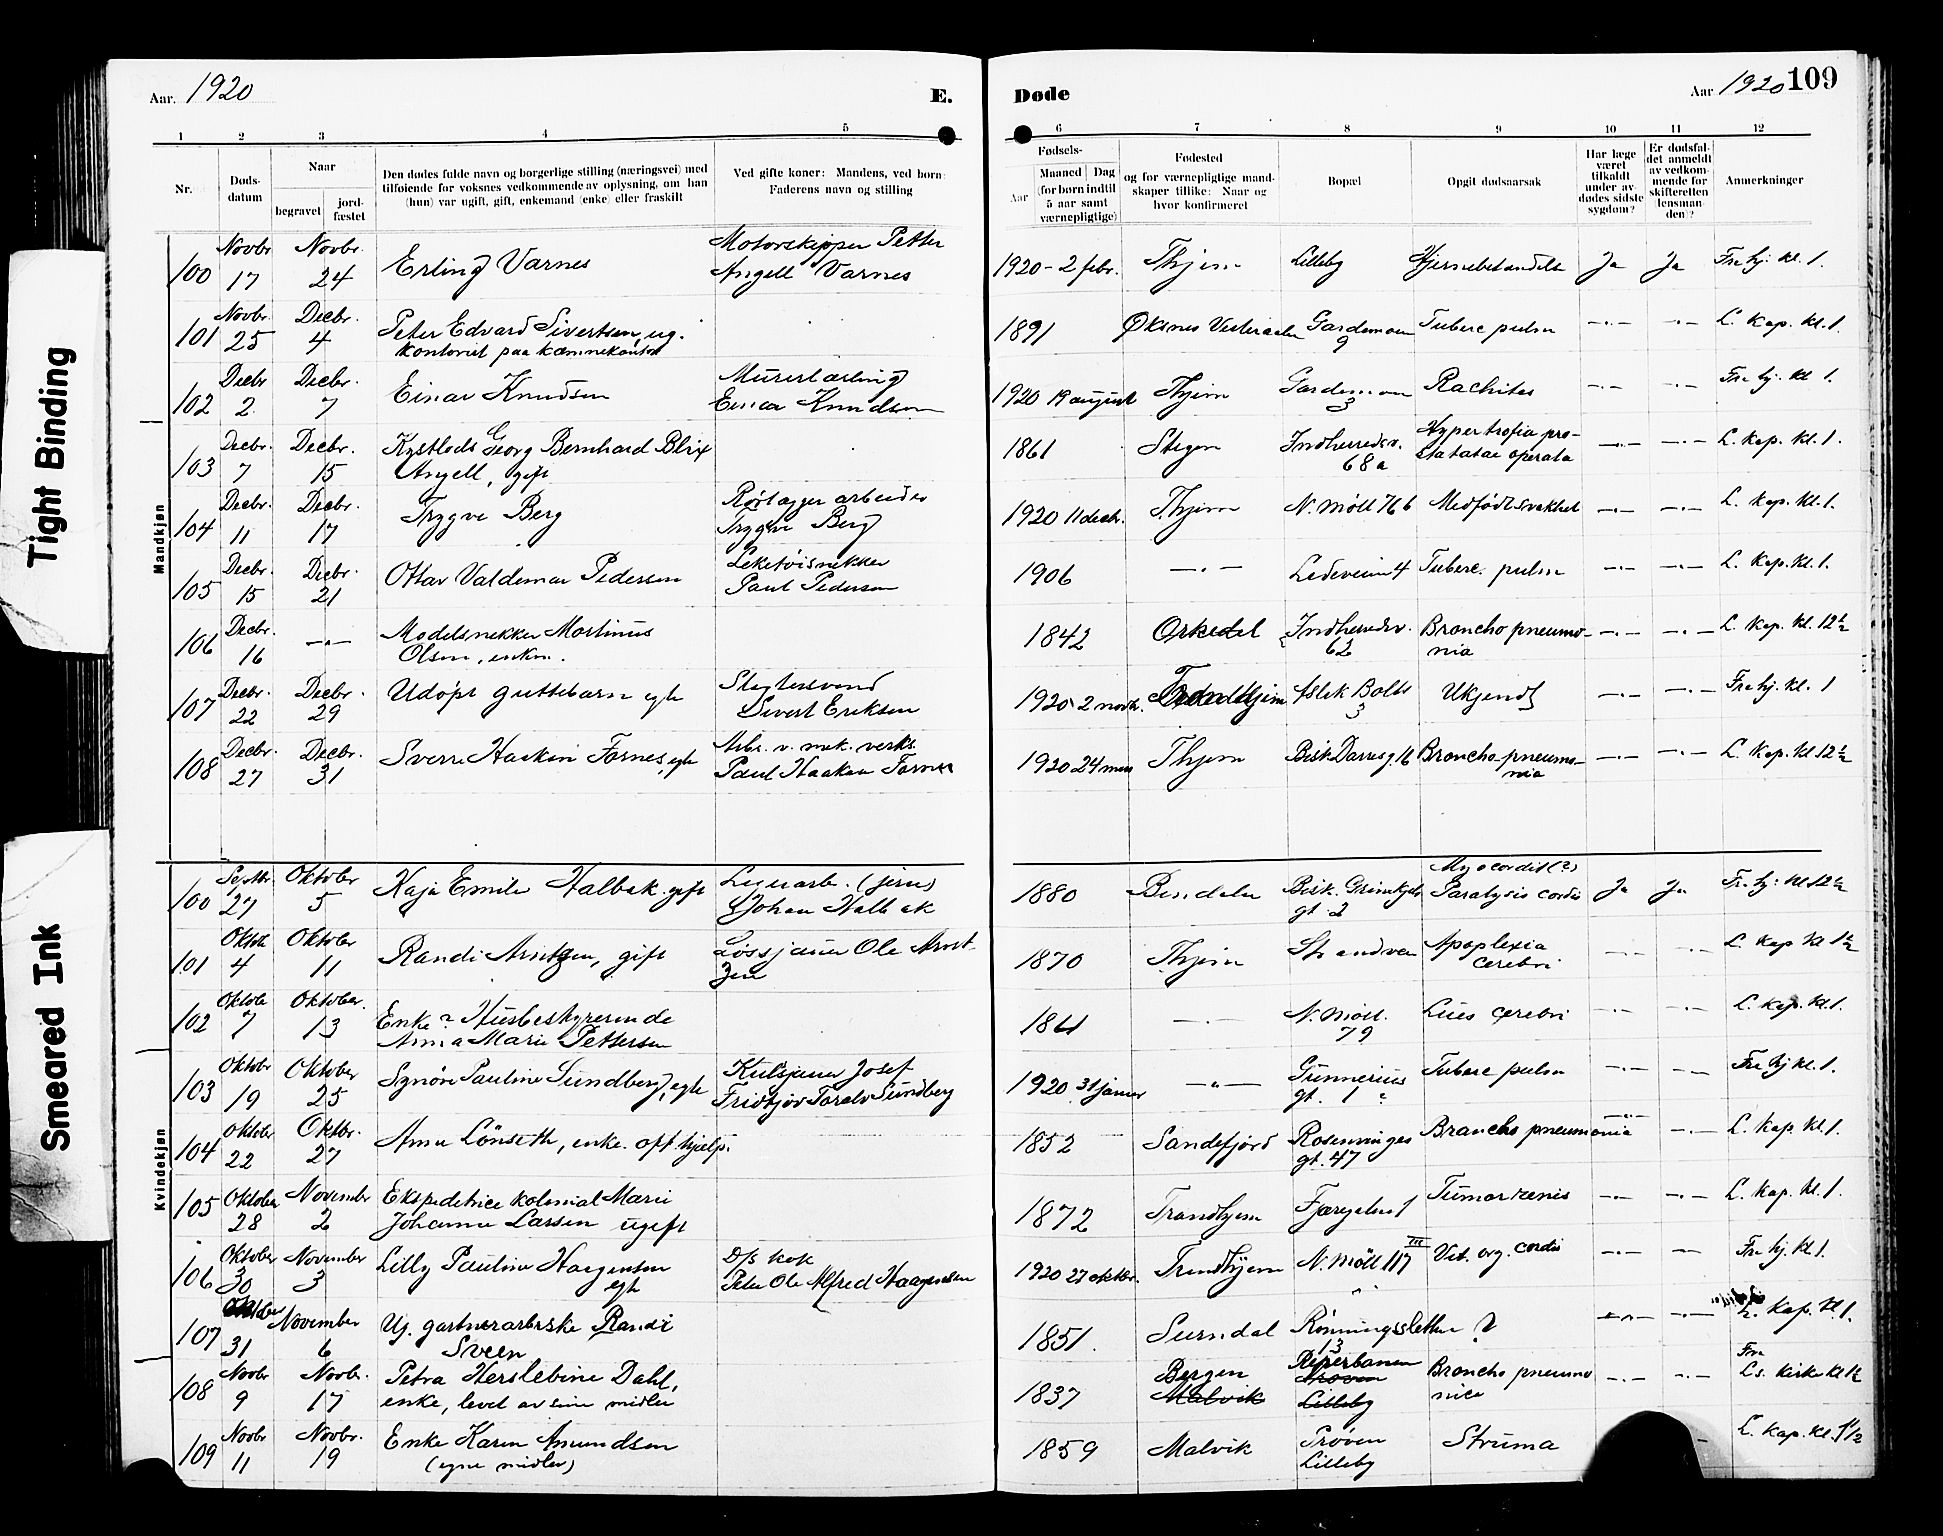 Tight Binding
Smeared Ink
Aar. 1920
E.
Døde
Aar 1920 109
1 2 3 4 5 6 7 8 9 10 11 12
Nr.
Døds-
datum
Naar
begravet
jord-
fæstet
Den dødes fulde navn og borgerlige stilling (næringsvei) med
tilføiende for voksnes vedkommende av oplysning, om han
(hun) var ugift, gift, enkemand (enke) eller fraskilt
Ved gifte koner: Mandens, ved børn:
Faderens navn og stilling
Fødsels-
Aar
Maaned | Dag
(for børn indtil
5 aar samt
værnepligtige)
Fødested
og for værnepligtige mand-
skaper tillike: Naar og
hvor konfirmeret
Bopæl
Opgit dødsaarsak
Har læge
været
tilkaldt
under av-
dødes sidste
sygdom?
Er dødsfal-
det anmeldt
av vedkom-
mende for
skifteretten
(lensman-
den)?
Anmerkninger
Mandkjøn
100 Novbr. 17 Novbr. 24 Erling Varnes Motorskipper Petter
Angell Varnes 1920 - 2 febr. Thjem Lilleby Hjernebetændelse Ja Ja Fra hj. kl. 1.
101 Novbr. 25 Decbr. 4 Peter Edvard Sivertsen, ug.
kontorist paa kæmnerkontor 1891 Øksnes Vesteraalen Gardemoen 9 Tuberc pulm —„— —„— L. kap. kl. 1.
102 Decbr 2. Decbr. 7 Einar Knudsen Murerlærling
Einar Knudsen 1920 19 august Thjem Gardemoen 3 Rachites —„— —„— Fra hj. kl 1.
103 Decbr. 7 Decbr. 15 Kystlods Georg Bernhard Blix
Angell, gift 1861 Stegen Indherredsv. 68a Hypertrofia pro-
statatae operata —„— —„— L. kap. kl. 1.
104 Decbr. 11 Decbr. 17 Trygve Berg Rørlægger arbeider
Trygve Berg 1920 11 decbr. Thjem N. Møll 76 b Medfødt svakhet —„— —„— L. kap. kl. 1.
105 Decbr. 15 Decbr. 21 Ottar Valdemar Pedersen Leketøisnekker
Paul Pedersen 1906 —„— Ladeveien 4 Tuberc. pulm —„— —„— L. kap. kl. 1.
106 Decbr. 16 —„— Modelsnekker Martinus
Olsen, enkm. 1842 Orkedal Indherredsv. 62 Broncho pneumo-
nia —„— —„— L. kap. kl. 12½
107 Decbr. 22 Decbr. 29 Udøpt guttebarn egte Slagtersvend
Sivert Eriksen 1920 2 novbr. Trondhjem Aslak Bolts 3 Ukjendt —„— —„— Fra hj. kl. 1
108 Decbr. 27 Decbr. 31 Sverre Haakon Fornes, egte Arb. v. mek. verks.
Paul Haakon Fornes 1920 24 mars Thjem Bisk Darresg. 16 Broncho-pneumo-
nia —„— —„— L. kap. kl 12½
Kvindekjøn
100 Septbr. 27 Oktober 5 Kaja Emilie Halbak gift Lagerarb. (jern)
Johan Halbak 1880 Bindalen Bisk. Grimkjels
gt. 2 Myocordit (?)
Paralysis cordis Ja Ja Fra hj. kl 12½
101 Oktob. 4 Oktober 11 Randi Arntzen, gift Løssjauer Ole Arnt-
zen 1870 Thjem Strandvei Apoplexia
cerebri —„— —„— L. kap kl 1½
102 Oktob. 7 Oktober. 13 Enke? Husbestyrerinde
Anna Marie Pettersen 1861 —„— N. Møll. 79 Lues cerebri —„— —„— L. kap. kl. 1.
103 Oktobr 19 Oktober 25 Synøve Pauline Sundberg, egte Kulsjauer Josef
Fridtjov Toralv Sundberg 1920 31 januar —„— Gunnerius
gt. 1 Tuberc pulm —„— —„— Fra hj kl. 1.
104 Oktobr 22 Oktbr. 27 Anne Lønseth, enke. off. hjælp. 1852 Sandefjord Rosenborgs
gt. 47 Broncho pneumonia —„— —„— L. kap. kl. 1.
105 Oktober 28 November 2 Ekspeditrice kolonial Marie
Johanne Larsen ugift 1872 Trondhjem Fjæregaten 1 Tumor renis —„— —„— L. kap. kl. 1.
106 Oktober 30 November 3 Lilly Pauline Haagensen
egte D/s kok
Peter Ole Alfred Haagensen 1920 27 oktbr. Trondhjem N. Møll 117 III Vit. org. cordis —„— —„— Fra hj. kl. 1.
107 Oktober 31 November 6 Ug. gartnerarberske Randi
Sveen 1851. Surndal Rønningsletten 13 ? —„— —„— L. kap. kl. 1.
108 Novbr 9 Novbr. 17 Petra Herslebine Dahl,
enke, levet av sine midler 1837 Bergen
Malvik Reperbanen
Prøven
Lilleby Broncho pneumo
nia —„— —„— Fra
La. kirke kl 1½
109 Novbr 11 Novbr. 19 Enke Karen Amundsen
(egne midler) 1859 Malvik Prøven
Lilleby Struma — L. kap. kl. 1½